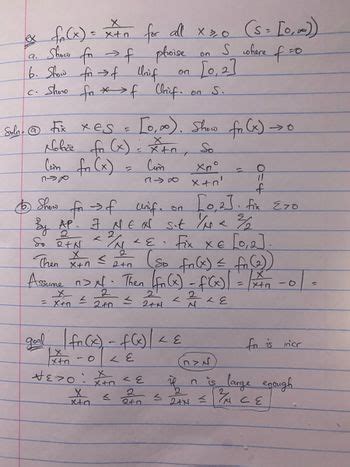 ex fn(x) = x/(x+n) for all x ≥ 0 (S = [0,∞))
a. Show fn → f ptwise on S where f = 0
b. Show fn → f Unif on [0,2]
c. Show fn ↛ f Unif. on S.
Soln. (a) Fix x ∈ S = [0,∞). Show fn(x) → 0
Notice fn(x) = x/(x+n), so
lim n→∞ fn(x) = lim n→∞ xn⁰/(x+n¹) = 0 = f
(b) Show fn → f unif. on [0,2]. fix ε>0
By AP. ∃ N ∈ ℕ s.t 1/N < ε/2
So 2/(2+N) < 2/N < ε. Fix x ∈ [0,2].
Then x/(x+n) ≤ 2/(2+n) (So fn(x) ≤ fn(2))
Assume n > N. Then |fn(x) - f(x)| = |x/(x+n) - 0| =
= x/(x+n) ≤ 2/(2+n) ≤ 2/(2+N) < 2/N < ε
goal |fn(x) - f(x)| < ε fn is incr
|x/(x+n) - 0| < ε (n > N)
∀ε>0 : x/(x+n) < ε if n is large enough
x/(x+n) ≤ 2/(2+n) ≤ 2/(2+N) ≤ 2/N < ε